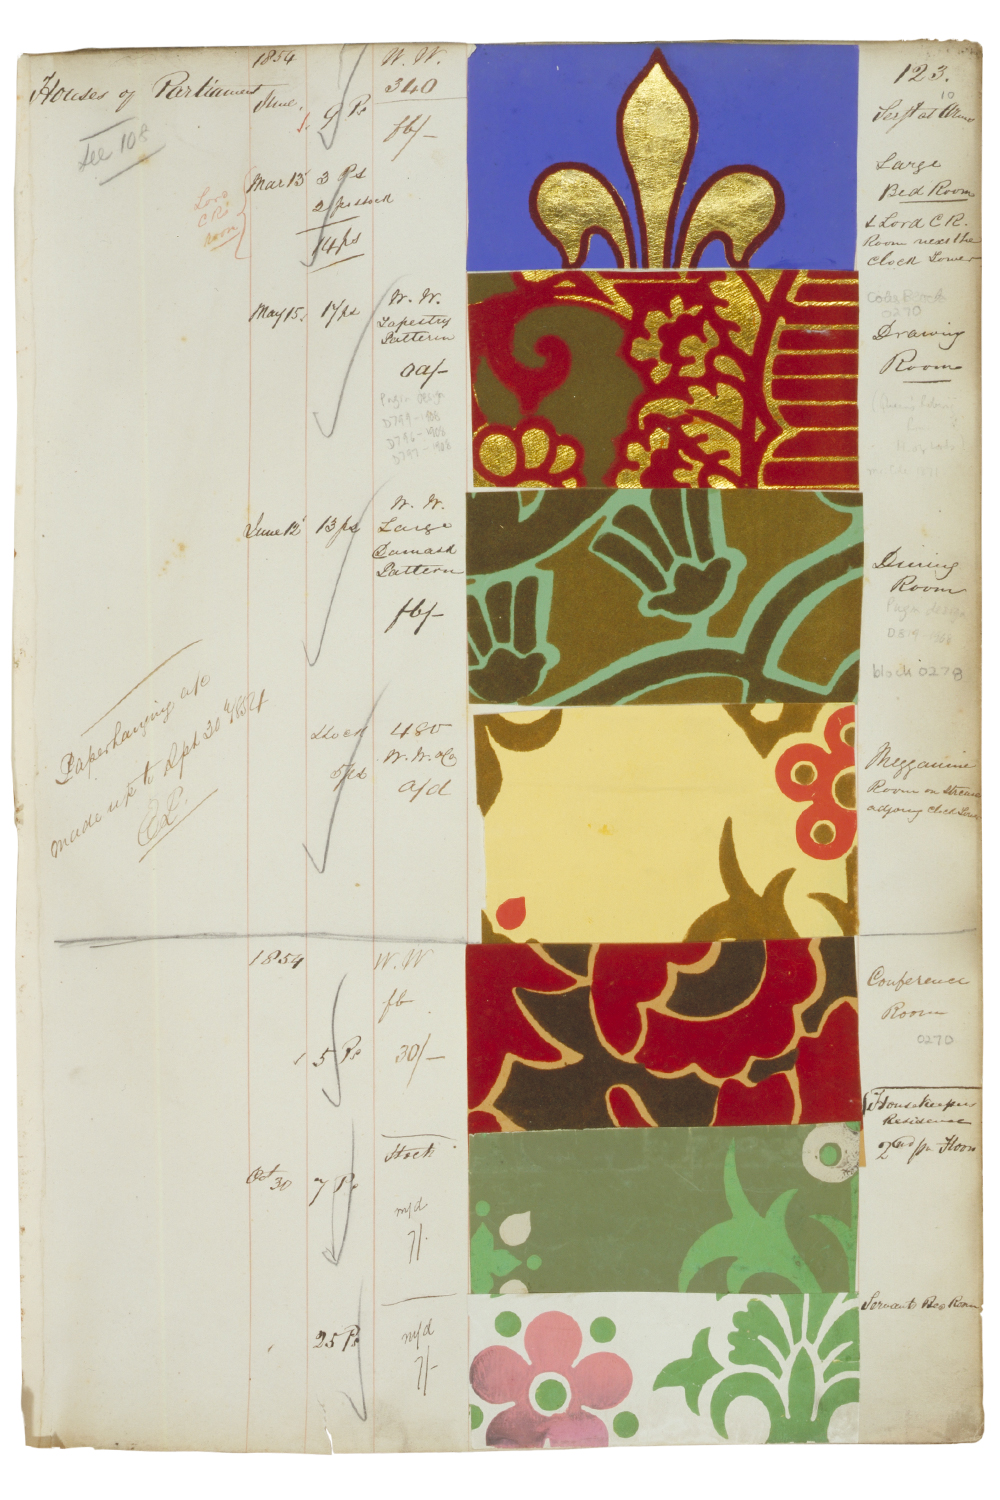 1854
W. W.
Houses of Parliament
June.
9 Ps
340
fb/-
123.
10
Serjt at Arms
See 108
Large
Bed Room
& Lord C R.
Room next the
Clock Tower
Lord
C Rs
Room
Mar 13
3 Ps
2 ps stock
14 ps
May 15.
17 ps
W. W.
Tapestry
Pattern
aa/-
Pugin design
D799-1908
D796-1908
D797-1908
0270
Drawing
Room
June 12
13 ps
W. W.
Large
Damask
Pattern
fb/-
Dining
Room
Pugin design
block 0278
Paperhanging a/c
made up to Sept 30th 1854
Stock
5 ps
480
W. W. & Co
a/d
Mezzanine
Room on Stream
adjoing Clock Tower
1854
W. W
fb
5 Ps
30/-
Conference
Room
0270
Housekeepers
Residence
2nd pr Floor
Oct
30
7 Ps
Stock
m/d
7/-
Servants Bed Room
25 Ps
m/d
7/-